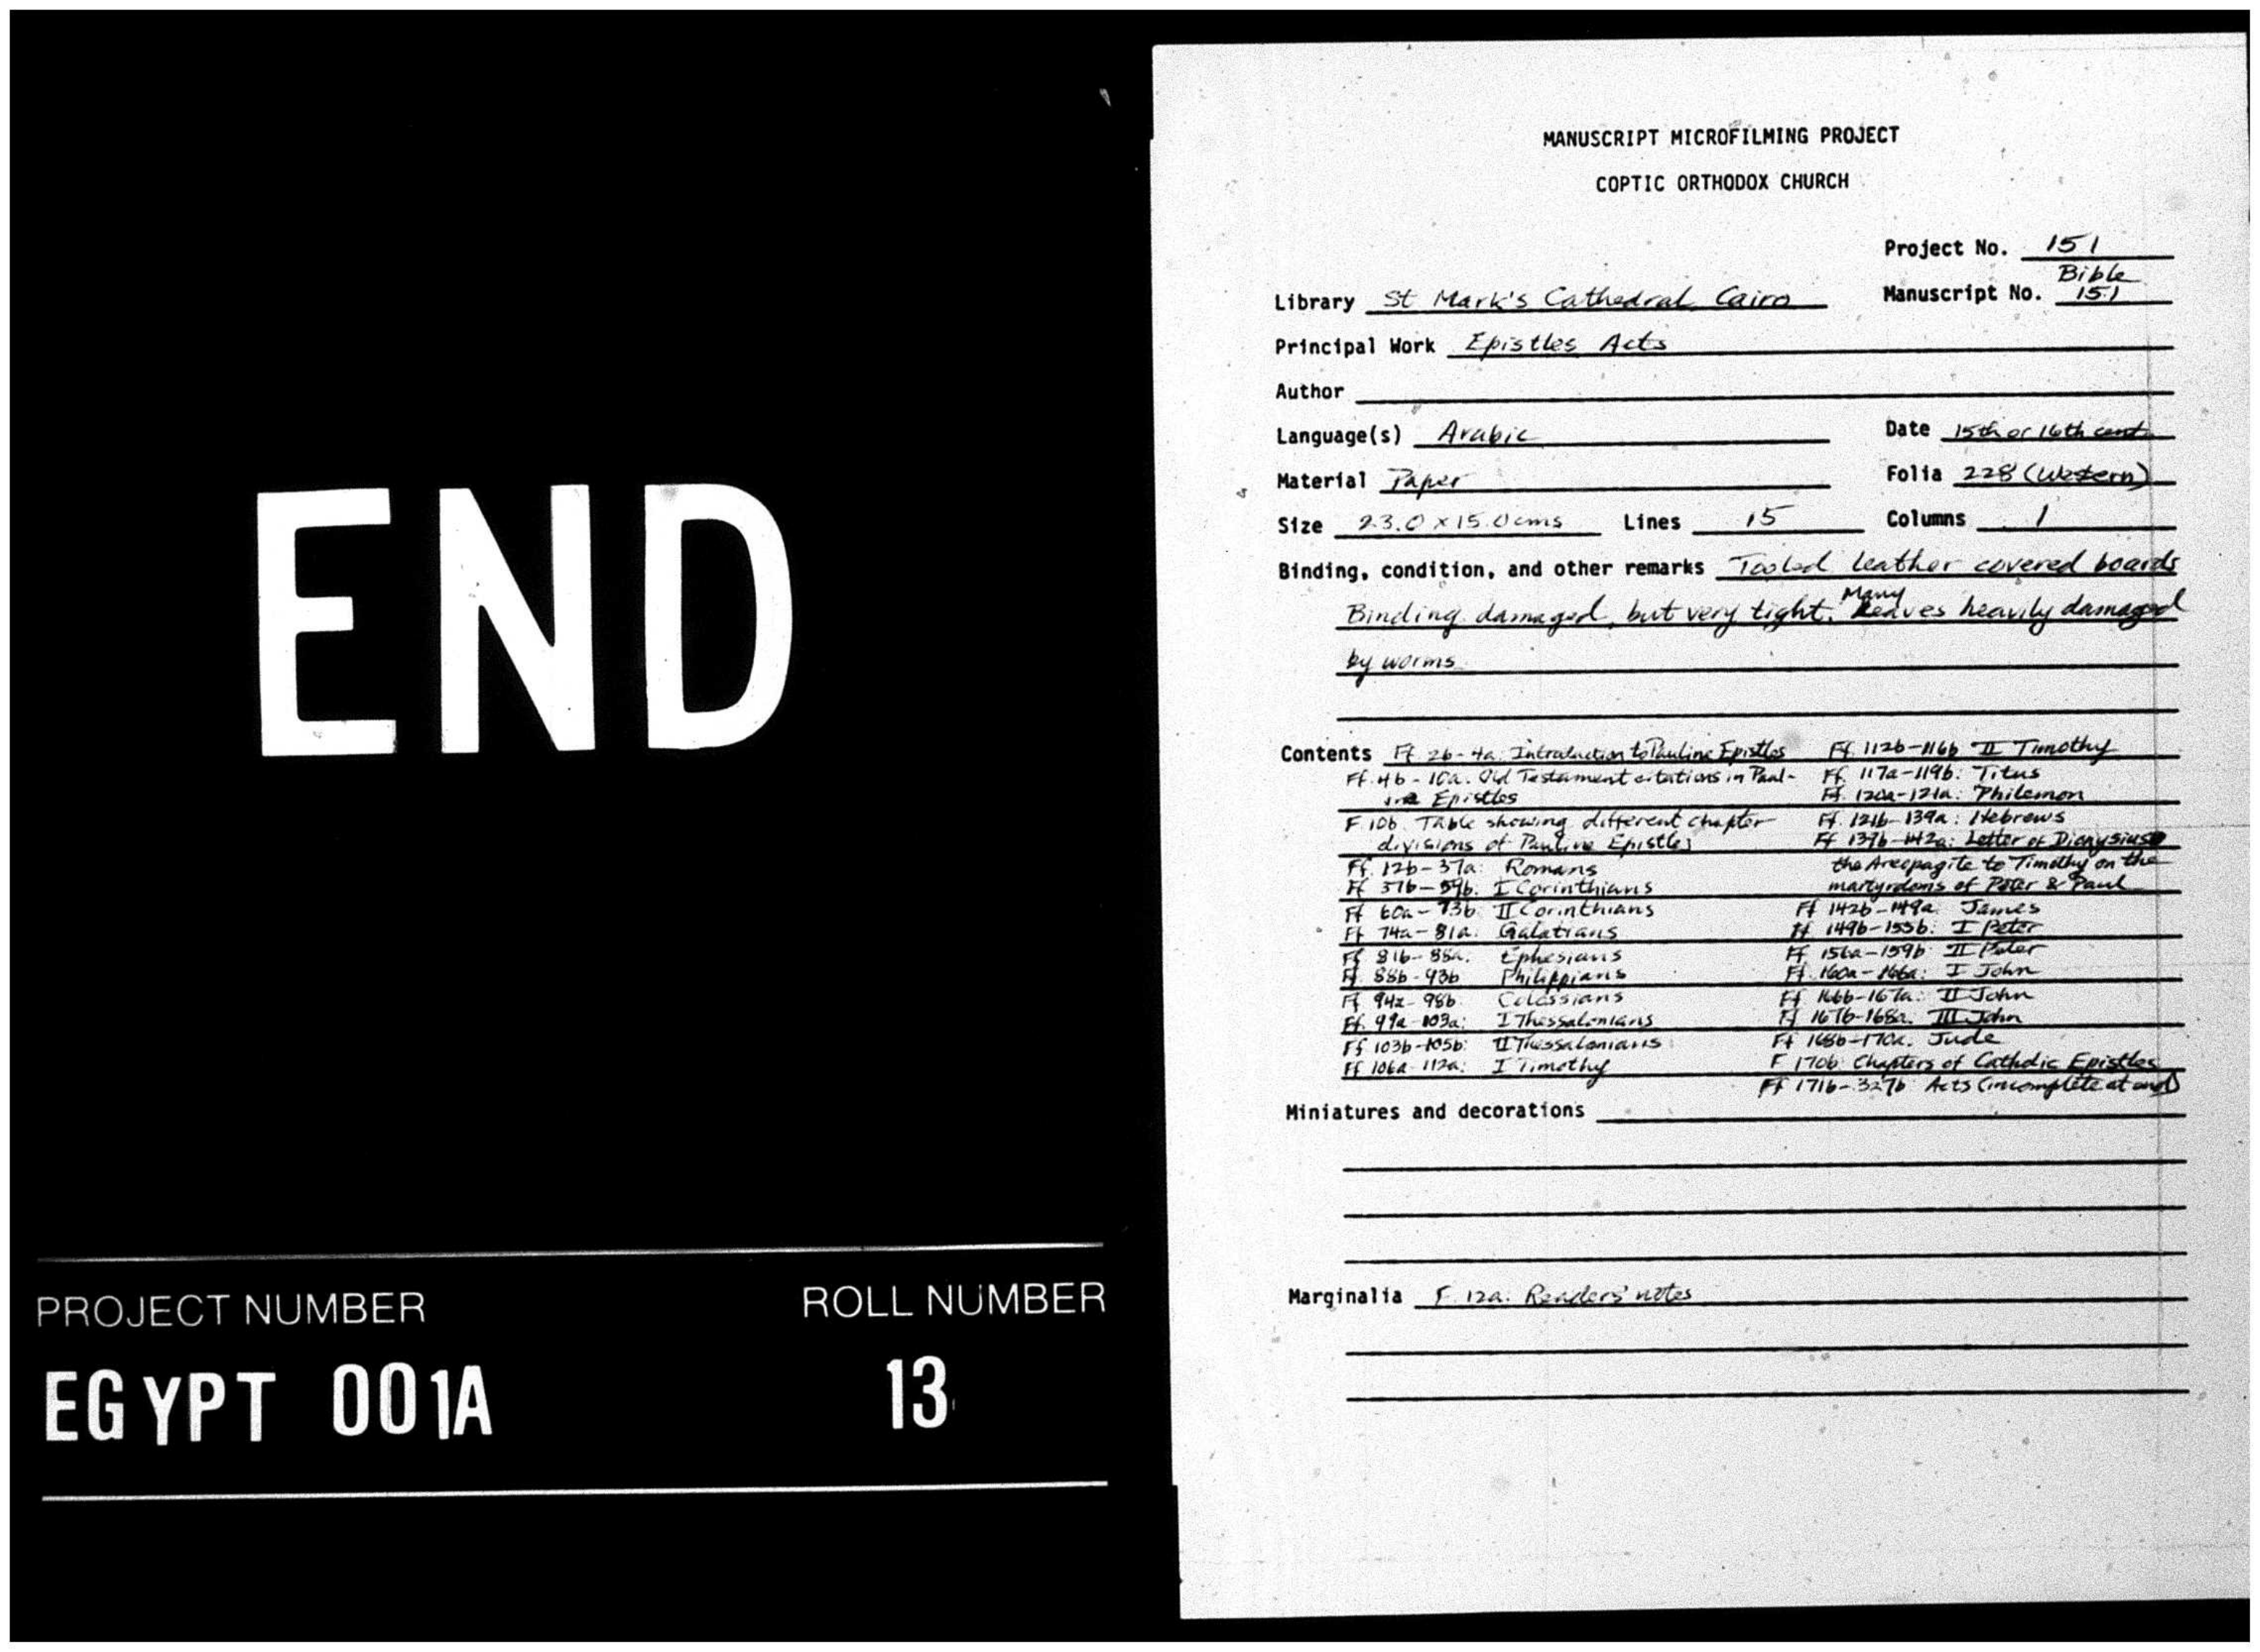 END
PROJECT NUMBER
ROLL NUMBER
EGYPT 001A
13
MANUSCRIPT MICROFILMING PROJECT
COPTIC ORTHODOX CHURCH
Project No. 151
Library St Mark's Cathedral Cairo
Manuscript No. Bible 151
Principal Work Epistles Acts
Author
Language(s) Arabic
Date 15th or 16th cent.
Material Paper
Folia 228 (Western)
Size 23.0 x 15.0 cms Lines 15 Columns 1
Binding, condition, and other remarks Tooled leather covered boards
Binding damaged, but very tight. Many leaves heavily damaged
by worms
Contents Ff. 2b-4a: Introduction to Pauline Epistles
Ff. 4b-10a: Old Testament citations in Paul-
ine Epistles
F. 10b. Table showing different chapter
divisions of Pauline Epistles
Ff. 12b-37a: Romans
Ff 37b-59b. I Corinthians
Ff 60a-73b II Corinthians
Ff 74a-81a: Galatians
Ff 81b-88a: Ephesians
Ff. 88b-93b Philippians
Ff 94a-98b Colossians
Ff. 99a-103a: I Thessalonians
Ff 103b-105b: II Thessalonians
Ff 106a-112a: I Timothy
Ff. 112b-116b II Timothy
Ff. 117a-119b: Titus
Ff. 120a-121a: Philemon
Ff. 121b-139a: Hebrews
Ff 139b-142a: Letter of Dionysius
the Areopagite to Timothy on the
martyrdoms of Peter & Paul
Ff 142b-149a: James
Ff 149b-155b: I Peter
Ff 156a-159b II Peter
Ff. 160a-166a: I John
Ff 166b-167a: II John
Ff 167b-168a. III John
Ff 168b-170a. Jude
F 170b: Chapters of Catholic Epistles
Ff 171b-327b: Acts (incomplete at end)
Miniatures and decorations
Marginalia F. 12a: Readers' notes